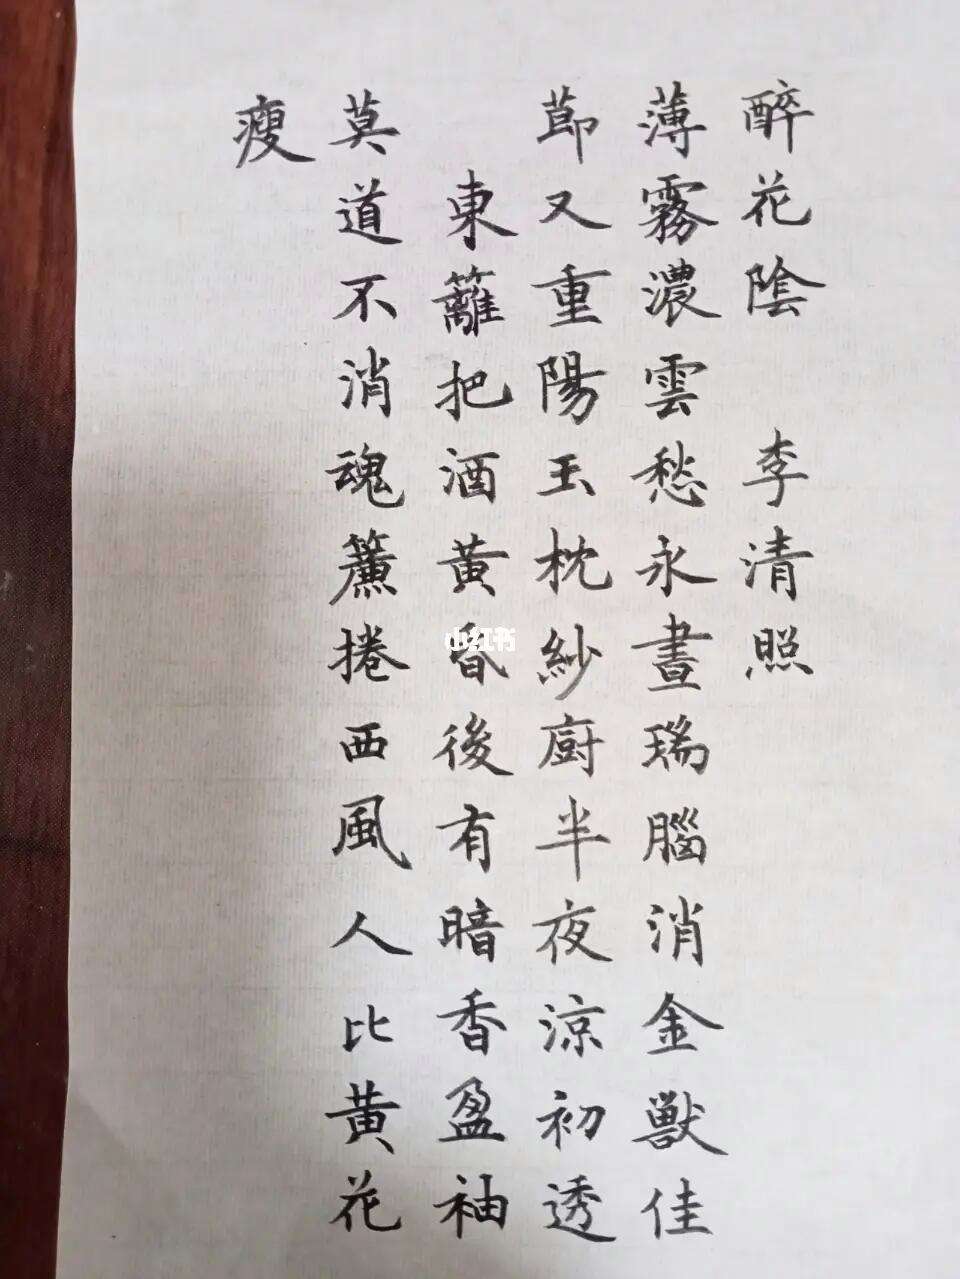 醉花陰 李清照
薄霧濃雲愁永晝瑞腦消金獸佳
節又重陽玉枕紗廚半夜涼初透
東籬把酒黃昏後有暗香盈袖
莫道不消魂簾捲西風人比黃花
瘦
小红书